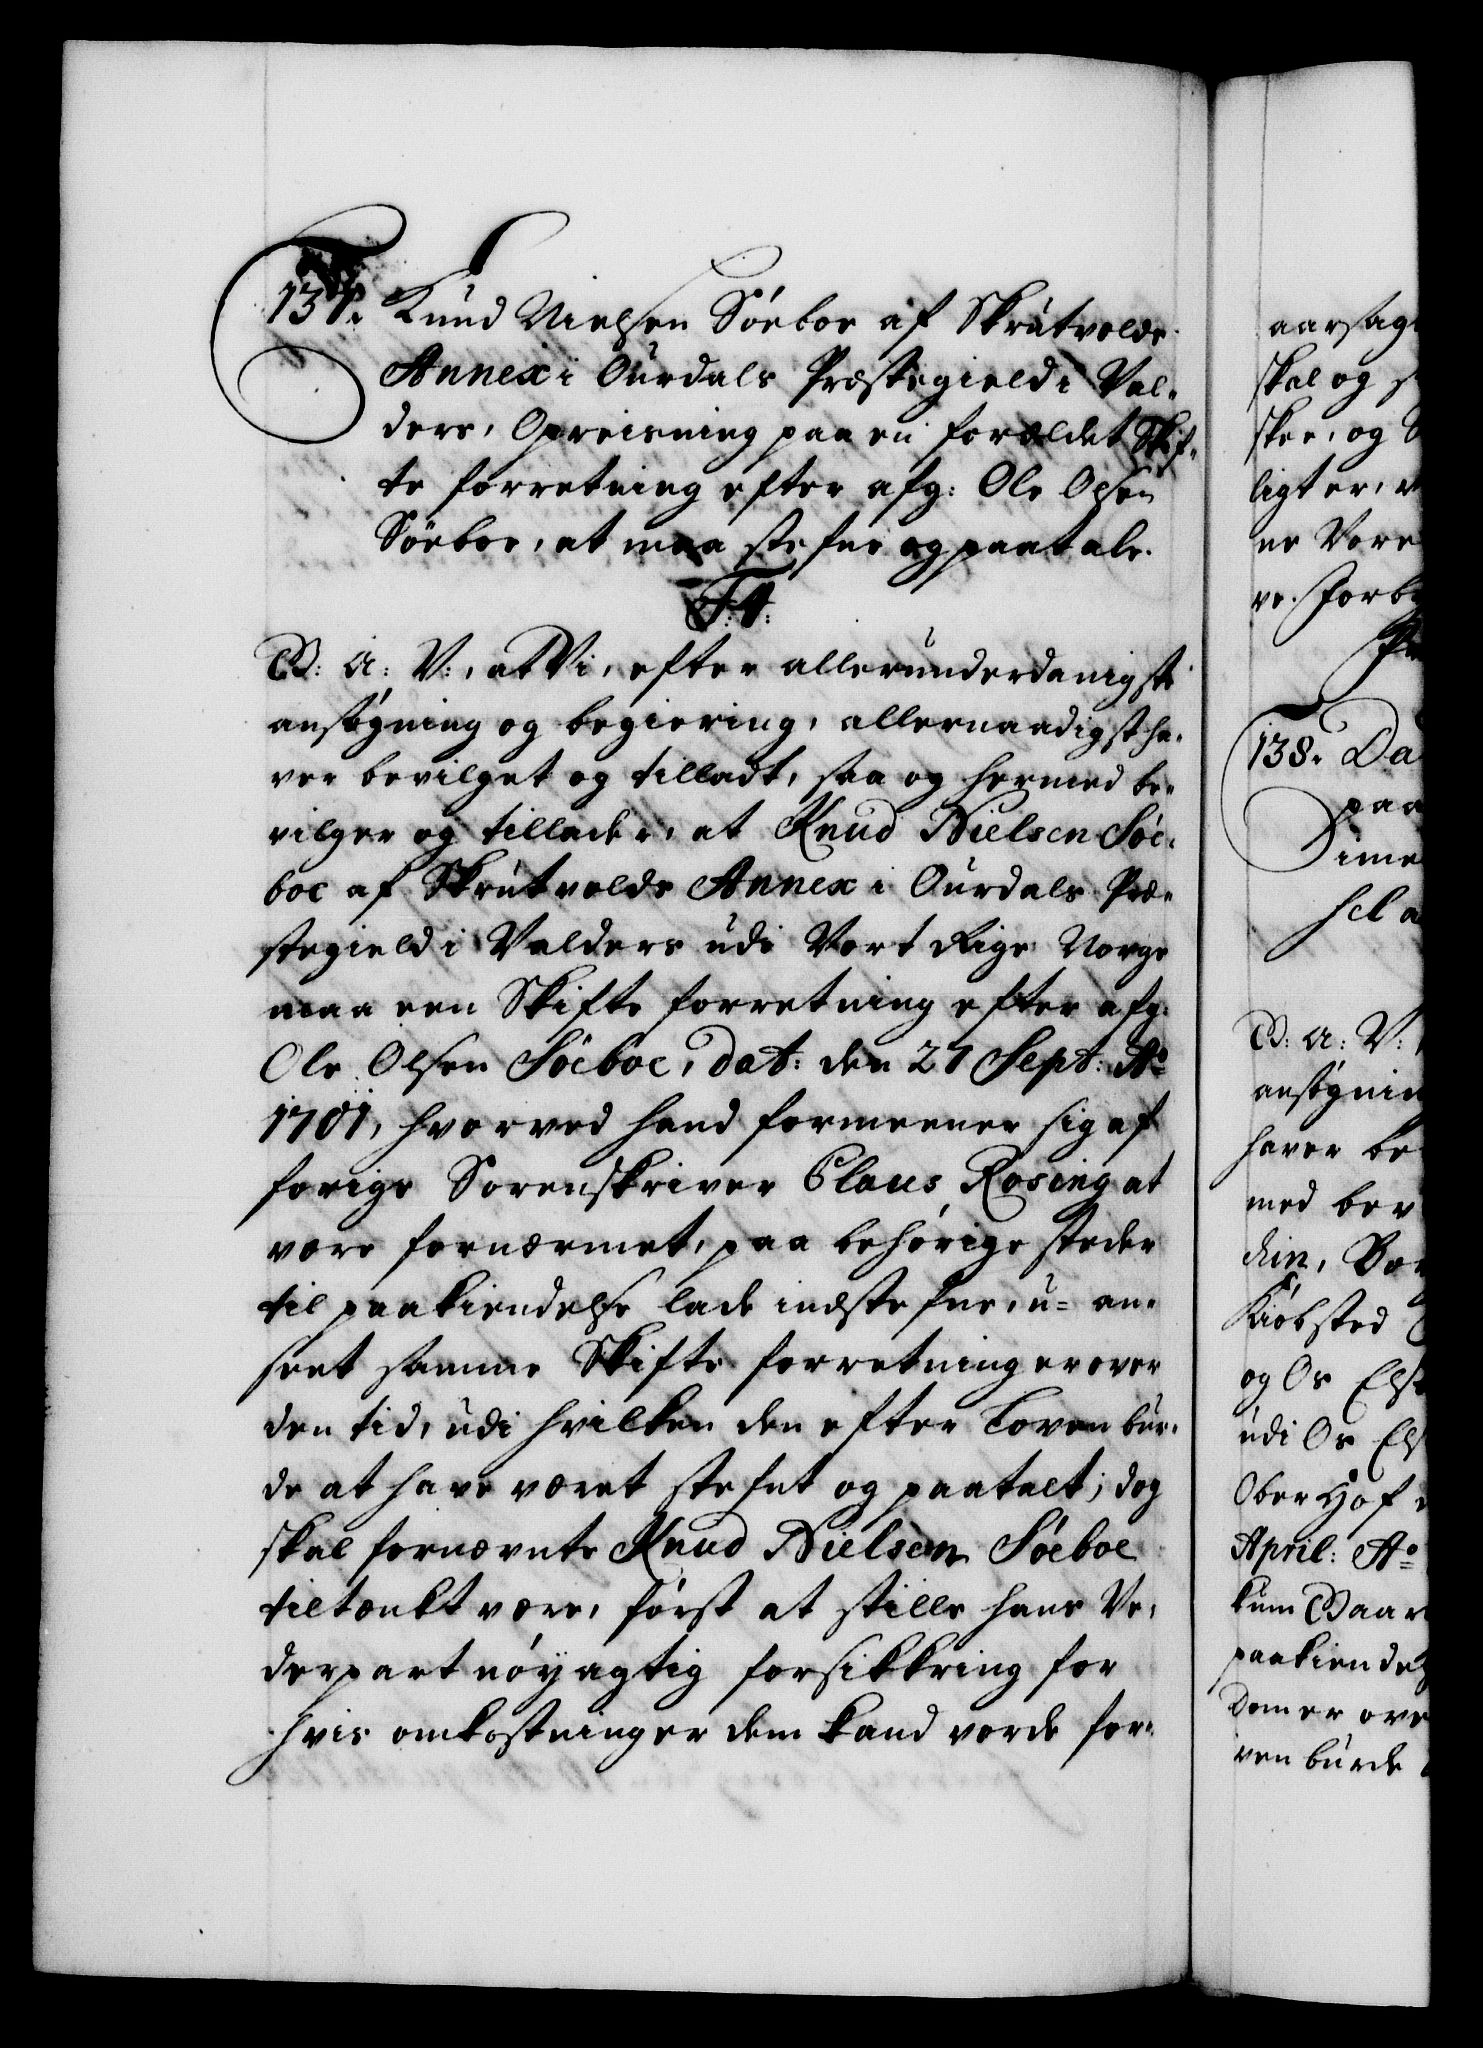 137. Knud Nielsen Söeboe af Skrutvolds
Annex i Ourdals Præstegield i Val-
ders, Opreisning paa en forældet Skif-
te forretning efter afg: Ole Olsen
Söeboe, at maa stefne og paatale.
F: 4:
G: A: V:, at Vi, efter allerunderdanigste
ansøgning og begiering, allernaadigst ha-
ver bevilget og tilladt, saa og hermed be-
vilger og tillader, at Knud Nielsen Söe-
boe af Skrutvolds Annex i Ourdals Præ-
stegield i Valders udi Vort Rige Norge
maa een Skifte forretning efter afg:
Ole Olsen Söeboe, dat: den 27 Sept: Aō
1701, hvorved hand formeener sig af
forige Sorenskriver Claus Rosing at
være fornærmet, paa behørige steder
til paakiendelse lade indstefne, u-an-
seet samme Skifte forretning er over
den tid, udi hvilken den efter Loven bur-
de at have været stefnt og paatalt; dog
skal fornævnte Knud Nielsen Söeboe
tiltænkt være, først at stille hans Ve-
derpart nöyagtig forsikkring for
hvis omkostninger dem kand vorde for-
aarsag
skal og
skee, og
ligt er,
ne Vore
ve. Forby
138. Da
paa
Dime
hel a
G: A: V:
ansøgnin
haver be
med bev
din, Bor
Kiöbsted
og Os Els
udi Os Els
Ober Hof
April: Aō
kum Gaar
paakiendel
Dom er ove
ven burde